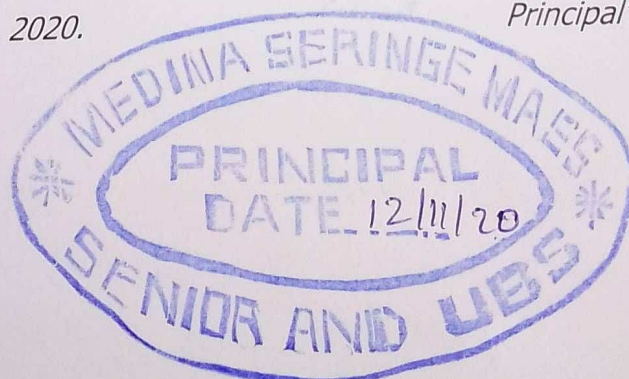 2020. Principal
* MEDINA SERINGE MASS *
PRINCIPAL
DATE 12/11/20
SENIOR AND UBS